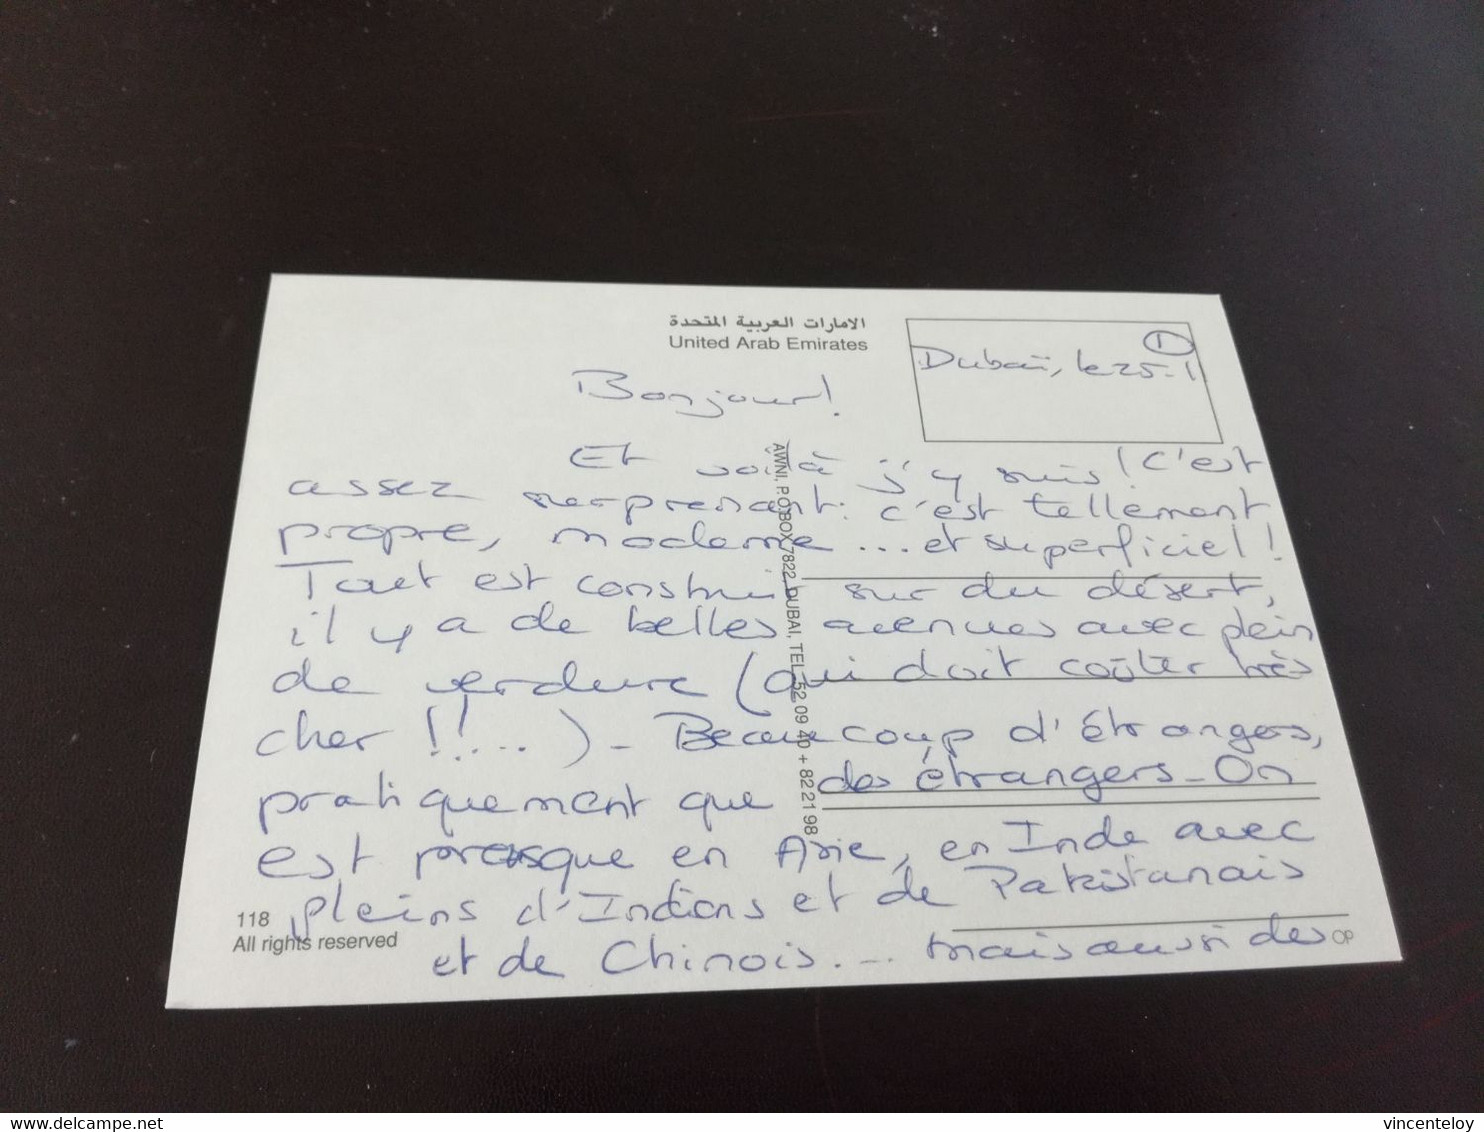 الامارات العربية المتحدة
United Arab Emirates
1
Dubaï, le 25.1
Bonjour!
Et voilà j'y suis! C'est
assez surprenant: c'est tellement
propre, moderne ... et superficiel!
Tout est construit sur du désert,
il y a de belles avenues avec plein
de verdure (qui doit coûter très
cher !!...) - Beaucoup d'étrangers,
pratiquement que des étrangers - On
est presque en Asie, en Inde avec
pleins d'Indiens et de Pakistanais
et de Chinois... mais aussi des
AWNI, P.O.BOX 7822, DUBAI, TEL. 52 09 40 + 82 21 98
118
All rights reserved
OP
www.delcampe.net
vincenteloy